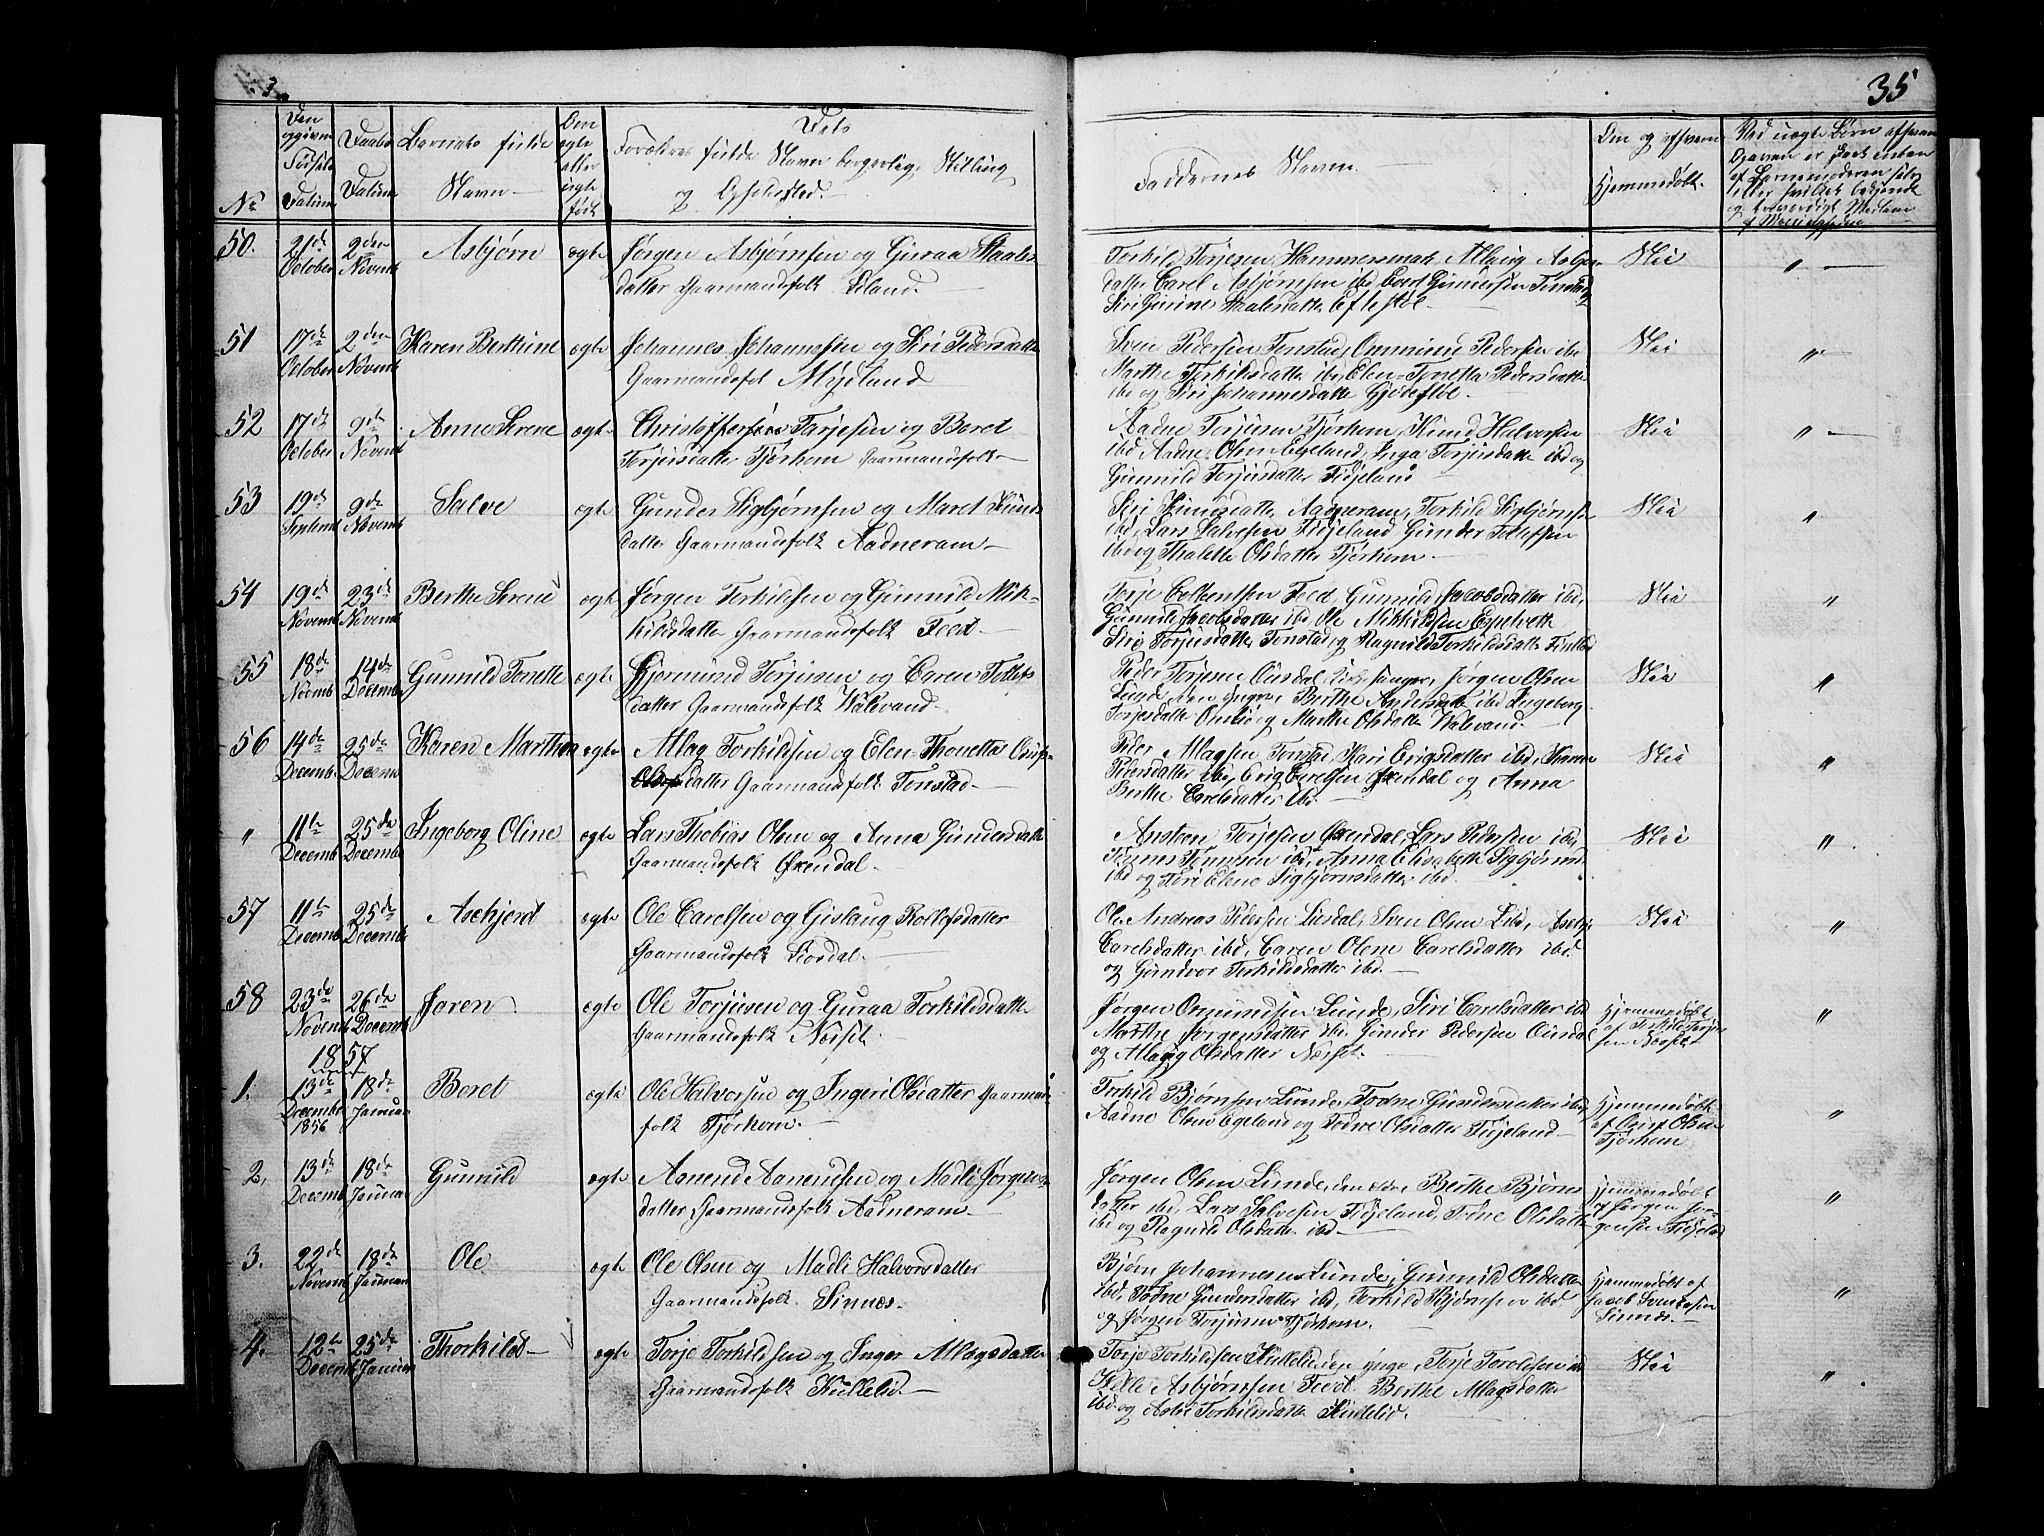 35
No
Den opgivne Fødsels Datum
Daabs Datum
Barnets fulde Navn
Om ægte eller uægte født
Dets Forældres fulde Navn borgerlig Stilling og Opholdssted.
Faddernes Navn.
Om og af hvem Hjemmedøbt.
50.
21de October
2den Novemb
Asbjørn
ægte
Jørgen Asbjørnsen og Guraa Staales
datter Gaarmandsfolk Liland.
Torkild Torjesen Hammersmark, Allaug Asbjørns
datter Carel Asbjørnsen ibd Evert Gundersen Tonstad
Siri Gurine Staalesdatter Eftestøl.
Nei
"
51
17de October
2den Novemb
Karen Berthine
ægte
Johannes Johannesen og Siri Pedersdatter
Gaarmandsfol Mydland
Sven Pedersen Tonstad, Ommund Pedersen ibd
Marthe Torkildsdatter ibd, Elen Tonetta Pedersdatter
ibd og Siri Johannesdatter Gjødestøl.
Nei
"
52
17de October
9de Novemb
Anne Serene
ægte
Christoffer Tarjesen og Beret
Torjusdatter Tjørhom Gaarmandsfolk
Aadne Torjusen Tjørhom, Knud Halversen
ibd Aadne Olsen Egeland, Inga Torjusdatter ibd og
Gunnild Torjusdatter Fidjeland
Nei
"
53
19de Septemb
9de Novemb
Salve
ægte
Gunder Sigbjørnsen og Maret Knuds
datter Gaarmandsfolk Aadneram
Siri Knudsdatter Aadneram, Torkild Sigbjørnsen
ibd, Lars Salvesen Fidjeland Gunder Tollefsen
ibd og Thalette Olsdatter Tjørhom.
Nei
"
54
19de Novemb
23de Novemb
Berthe Serene
ægte
Jørgen Torkildsen og Gunnild Mik-
kildsdatter Gaarmandsfolk Feed
Torje Torkildsen Feed Gunnild Jacobsdatter ibd,
Gunnild Jacobsdatter ibd Ole Mikkildsen Espetvet
Siri Torjusdatter Tonstad og Ragnild Torkildsdatter
Nei
"
55
18de Novemb
14de Decemb
Gunnild Tonette
ægte
Gjermund Torjusen og Caren Tollefs
datter Gaarmandsfolk Walevand
Peder Torjusen Ousdal Jørgen Olsen
Lunde den yngre, Berthe Andersdatter ibd Ingeborg
Torjesdatter og Marthe Olsdatter Walevand.
Nei
"
56
14de Decemb
25de Decemb
Karen Marthea
ægte
Allag Torkildsen og Elen Thonetta Osufs-
datter Gaarmandsfolk Tonstad.
Peder Allagsen Tonstad, Kari Erigsdatter ibd, Karen
Pedersdatter ibd, Erig Carelsen Øxendal og Anna
Berthe Carelsdatter ibd.
Nei
"
"
11te Decemb
25de Decemb
Ingeborg Oline
ægte
Lars Thobias Olsen og Anna Gundersdatter
Gaarmandsfolk Øxendal.
Torjesen Øxendal, Lars Pedersen ibd,
Tønnes Tønnesen ibd, Anna Elisabeth Sigbjørnsd
ibd og Siri Elene Sigbjørnsdatter ibd.
Nei
"
57
11te Decemb
25de Decemb
Asekjerd
ægte
Ole Carelsen og Gislaug Rollefsdatter
Gaarmandsfolk Liosdal.
Ole Andreas Pedersen Liosdal, Sven Olsen ibd,
Carelsdatter ibd, Caren Olene Carelsdatter ibd
og Gundvor Torkildsdatter ibd.
Nei
"
58
23de Novemb
26de Decemb
Joren
ægte
Ole Torjusen og Guraa Torkildsdatter
Gaarmandsfolk Næset.
Jørgen Ommundsen Lunde, Siri Carelsdatter ibd
Marthe Jørgensdatter ibd, Gunder Pedersen Ousdal
og Allaug Olsdatter Næset.
Hjemmedøbt af Torkild Torju-
sen Næset
"
1857
1.
13de Decembr 1856
18de Januar
Beret
ægte
Ole Halvorsen og Ingeri Olsdatter Gaarmands
folk Tjørhom.
Torkild Bjørnsen Lunde, Todne Gundersdatter ibd,
Aadne Olsen Egeland og Todne Olsdatter Fidjeland
Hjemmedøbt af Osuf Olsen Tjørhom
"
2.
13de Decemb
18de Januar
Gunnild
ægte
Aanend Aanensen og Madli Jørgens-
datter Gaarmandsfolk Aadneram.
Jørgen Olsen Lunde, den Berthe Bjørns
datter ibd, Lars Salvesen Fidjeland, Todne Olsdatter
ibd og Ragnild Olsdatter ibd.
Hjemmedøbt af Jørgen Jør-
gensen Fidjeland
"
3.
22de Novemb
18de Januar
Ole
ægte
Ole Olsen og Madli Halvorsdatter
Gaarmandsfolk Sinnæs.
Bjørn Johannesen Lunde, Gunnild Olsdatter
ibd, Todne Gundersdatter ibd, Torkild Bjørnsen ibd
og Jørgen Torjusen Tjørhom.
Hjemmedøbt af Jacob Svendsen Sinnæs.
"
4.
12te Decemb
25de Januar
Thorkild
ægte
Torje Torkildsen og Inger Allagsdatter
Gaarmandsfolk Kvellelid.
Torje Torkildsen Kvellelid den yngre, Torje Torkildsen ibd
Asbjørnsen Feed Berthe Allagsdatter
ibd og Torkildsdatter Kvellelid.
Nei
"